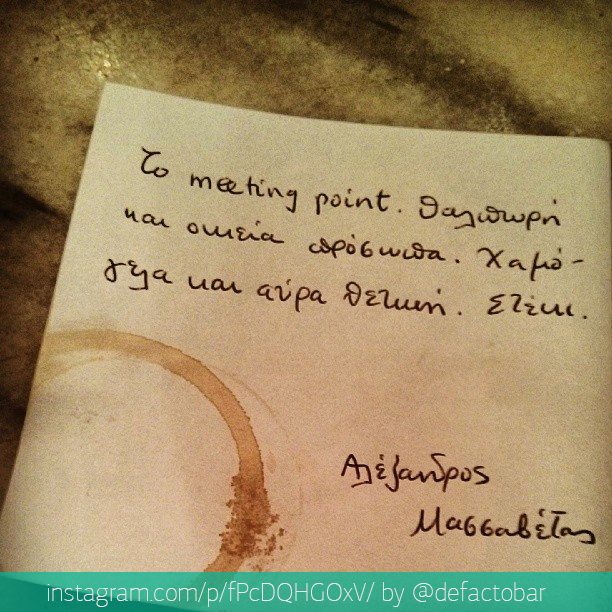 Το meeting point. Θαλπωρή
και οικεία πρόσωπα. Χαμό-
γελα και αύρα θετική. Στέκι.
Αλέξανδρος
Μασσαβέτας
instagram.com/p/fPcDQHGOxV/ by @defactobar